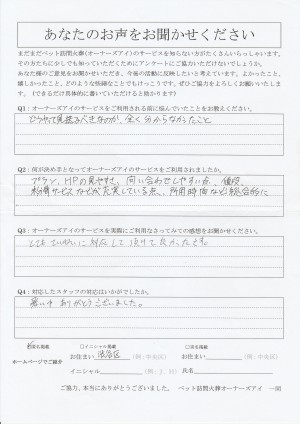 あなたのお声をお聞かせください
まだまだペット訪問火葬(オーナーズアイ)のサービスを知らない方がたくさんいらっしゃいます。
その方たちに少しでも知っていただくためにアンケートにご協力いただけないでしょうか。
あなた様のご意見をお聞かせいただき、今後の活動に反映したいと考えています。よかったこと、
嬉しかったこと、どのような些細なことでもけっこうです。ぜひご協力をよろしくお願いいたしま
す。(できるだけ具体的に書いていただけると助かります)
Q1:オーナーズアイのサービスをご利用される前に悩んでいたことをお教えください。
全く分からなかったこと
Q2:何が決め手となってオーナーズアイのサービスをご利用されましたか。
プラン、HPの見やすさ、問い合わせしやすい点、値段、
サービスなどが充実している点、所用時間など総合的に
Q3:オーナーズアイのサービスを実際にご利用なさってみての感想をお聞かせください。
とてもていねいに対応して頂けてよかったです。
Q4:対応したスタッフの対応はいかがでしたか。
暑い中ありがとうございました。
□イニシャル掲載
□実名掲載
ホームページでご紹介
お住まい 渋谷区 (例:中央区)
お住まい (例:中央区)
イニシャル (例:J.H)
氏名
ご協力、本当にありがとうございました。 ペット訪問火葬オーナーズアイ 一同